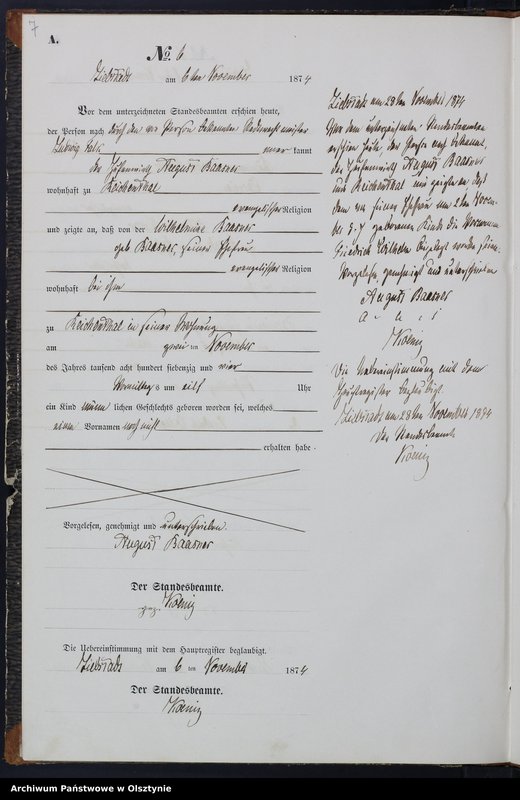 7
A.
No. 6
Liebstadt am 6ten November 1874
Vor dem unterzeichneten Standesbeamten erschien heute,
der Person nach durch den von Person bekannten
Ludwig kannt
der August Baasner
wohnhaft zu Reichenthal
evangelischer Religion
und zeigte an, daß von der Wilhelmine Baasner
geb Baasner, seiner Ehefrau
evangelischer Religion
wohnhaft bei ihm
zu Reichenthal in seiner Wohnung
am zwei ten November
des Jahres tausend acht hundert siebenzig und vier
Vormittags um elf Uhr
ein Kind männlichen Geschlechts geboren worden sei, welches
einen Vornamen noch nicht
erhalten habe
Vorgelesen, genehmigt und unterschrieben
August Baasner
Der Standesbeamte.
Koenig
Die Uebereinstimmung mit dem Hauptregister beglaubigt.
Liebstadt am 6 ten November 1874
Der Standesbeamte.
Koenig
Liebstadt am 28ten November 1874
Vor dem unterzeichneten Standesbeamten
erschien heute, der Person nach bekannt,
der August Baasner
aus Reichenthal und zeigte an daß
dem von seiner Ehefrau am 2ten Novem-
ber d. J. geborenen Kinde die Vornamen
Friedrich Wilhelm beigelegt worden seien.
Vorgelesen, genehmigt und unterschrieben
August Baasner
Koenig
Die Uebereinstimmung mit dem
Hauptregister beglaubigt.
Liebstadt am 28ten November 1874
Der Standesbeamte
Koenig
Archiwum Państwowe w Olsztynie